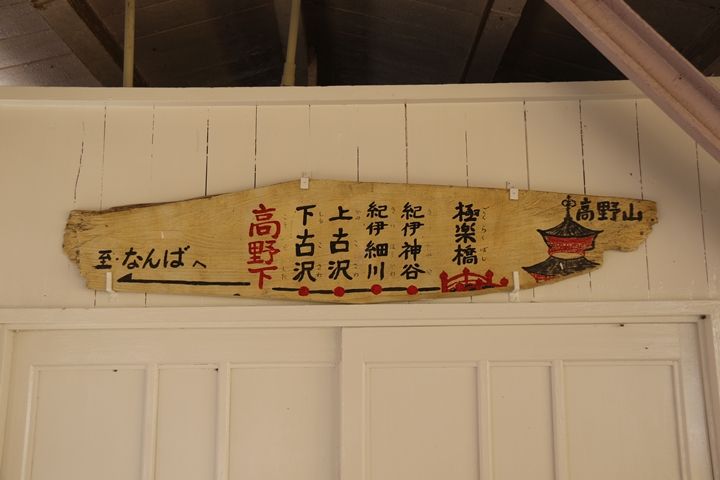 至なんばへ
高野下
下古沢
上古沢
紀伊細川
紀伊神谷
極楽橋
高野山